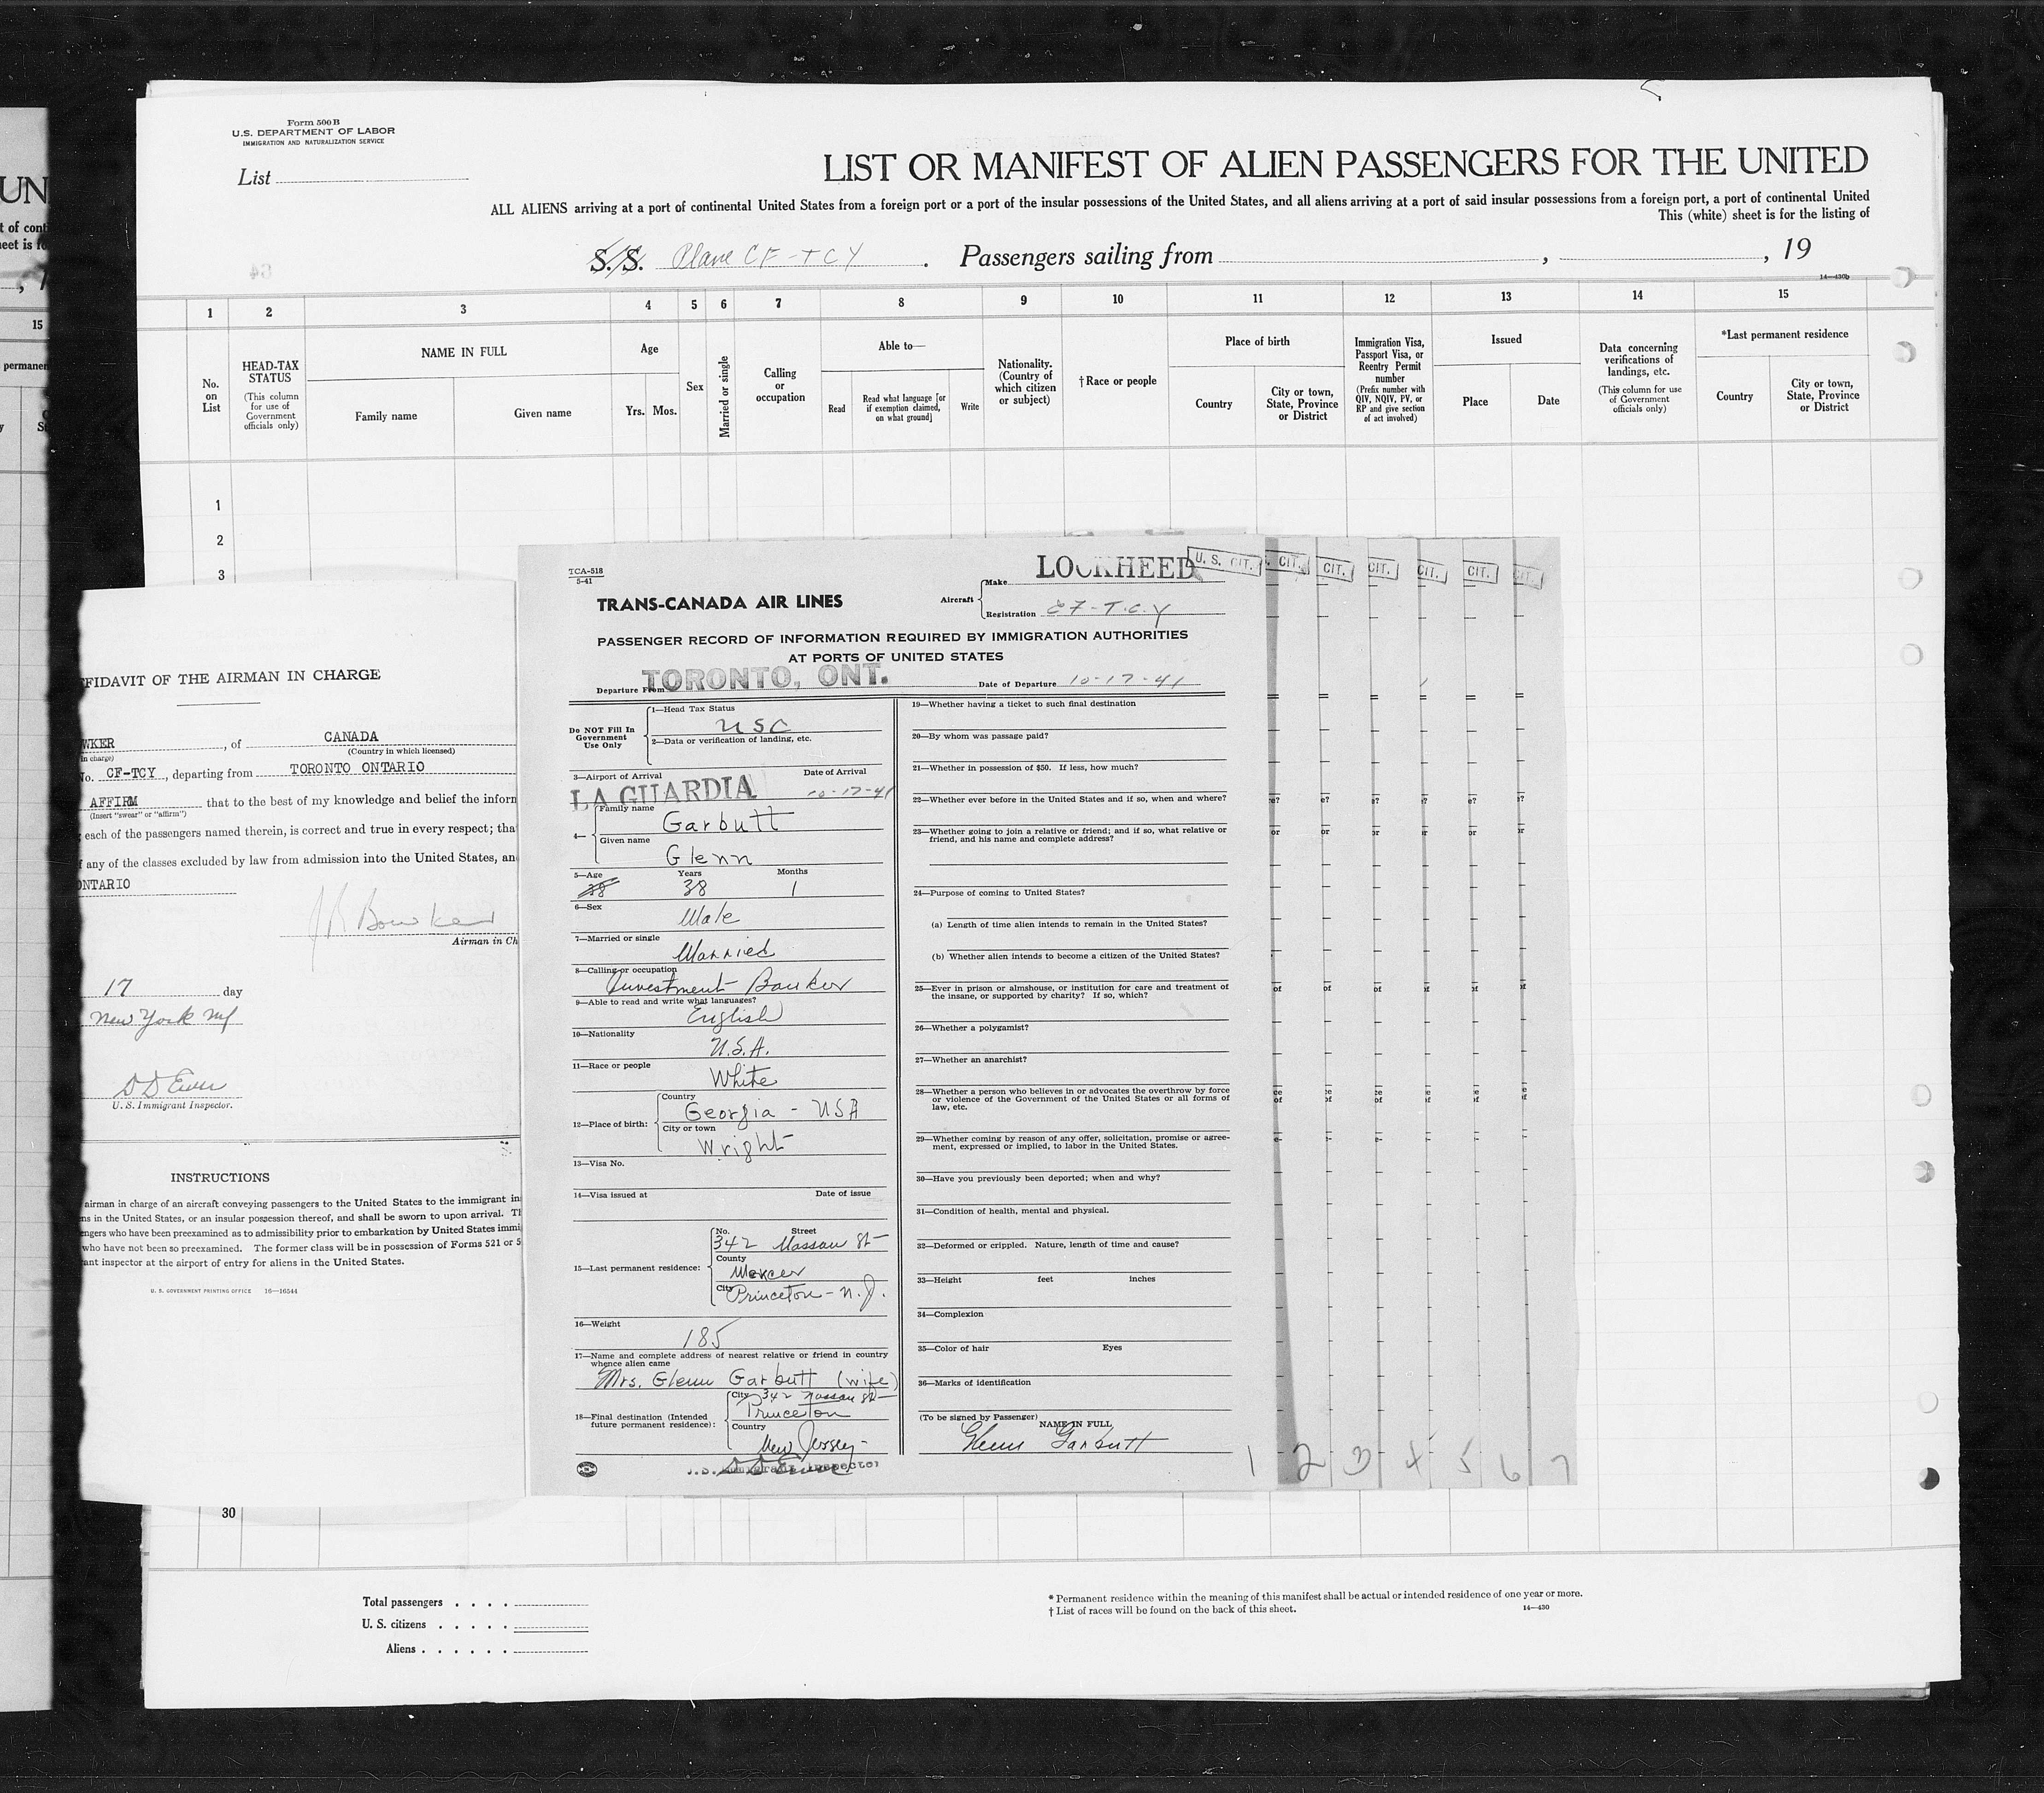 Form 500 B
U.S. DEPARTMENT OF LABOR
IMMIGRATION AND NATURALIZATION SERVICE
List
LIST OR MANIFEST OF ALIEN PASSENGERS FOR THE UNITED
ALL ALIENS arriving at a port of continental United States from a foreign port or a port of the insular possessions of the United States, and all aliens arriving at a port of said insular possessions from a foreign port, a port of continental United
This (white) sheet is for the listing of
S.S. Plane CF-TCY. Passengers sailing from , , 19
14—430b
1 2 3 4 5 6 7 8 9 10 11 12 13 14 15
No. on List
HEAD-TAX STATUS (This column for use of Government officials only)
NAME IN FULL
Family name Given name
Age
Yrs. Mos.
Sex
Married or single
Calling or occupation
Able to—
Read
Read what language [or if exemption claimed, on what ground]
Write
Nationality. (Country of which citizen or subject)
†Race or people
Place of birth
Country
City or town, State, Province or District
Immigration Visa, Passport Visa, or Reentry Permit number (Prefix number with QIV, NQIV, PV, or RP and give section of act involved)
Issued
Place Date
Data concerning verifications of landings, etc. (This column for use of Government officials only)
*Last permanent residence
Country
City or town, State, Province or District
1
2
3
30
FFIDAVIT OF THE AIRMAN IN CHARGE
WKER, of CANADA
in charge) (Country in which licensed)
No. CF-TCY, departing from TORONTO ONTARIO
AFFIRM that to the best of my knowledge and belief the inform
(Insert "swear" or "affirm")
each of the passengers named therein, is correct and true in every respect; tha
f any of the classes excluded by law from admission into the United States, an
ONTARIO
Bowker
Airman in Ch
17 day
New York NY
D D Ewen
U. S. Immigrant Inspector.
INSTRUCTIONS
airman in charge of an aircraft conveying passengers to the United States to the immigrant in
ns in the United States, or an insular possession thereof, and shall be sworn to upon arrival. Tl
engers who have been preexamined as to admissibility prior to embarkation by United States immi
who have not been so preexamined. The former class will be in possession of Forms 521 or 5
ant inspector at the airport of entry for aliens in the United States.
U. S. GOVERNMENT PRINTING OFFICE 16—16544
TCA-518
5-41
TRANS-CANADA AIR LINES
Aircraft
Make LOCKHEED
Registration CF-T.C.Y
U. S. CIT. CIT. CIT. CIT. CIT. CIT. CIT.
PASSENGER RECORD OF INFORMATION REQUIRED BY IMMIGRATION AUTHORITIES
AT PORTS OF UNITED STATES
Departure From TORONTO, ONT. Date of Departure 10-17-41
Do NOT Fill In Government Use Only
1—Head Tax Status
USC
2—Data or verification of landing, etc.
3—Airport of Arrival Date of Arrival
LA GUARDIA 10-17-41
4— Family name
Garbutt
Given name
Glenn
5—Age Years Months
38 38 1
6—Sex
Male
7—Married or single
Married
8—Calling or occupation
Investment Banker
9—Able to read and write what languages?
English
10—Nationality
U.S.A.
11—Race or people
White
12—Place of birth:
Country
Georgia - USA
City or town
Wright
13—Visa No.
14—Visa issued at Date of issue
15—Last permanent residence:
No. Street
342 Nassau St
County
Mercer
City
Princeton - N.J.
16—Weight
185
17—Name and complete address of nearest relative or friend in country whence alien came
Mrs. Glenn Garbutt (wife)
18—Final destination (Intended future permanent residence):
City 342 Nassau St
Princeton
Country
New Jersey
U.S. Immigrant Inspector
19—Whether having a ticket to such final destination
20—By whom was passage paid?
21—Whether in possession of $50. If less, how much?
22—Whether ever before in the United States and if so, when and where?
23—Whether going to join a relative or friend; and if so, what relative or
friend, and his name and complete address?
24—Purpose of coming to United States?
(a) Length of time alien intends to remain in the United States?
(b) Whether alien intends to become a citizen of the United States?
25—Ever in prison or almshouse, or institution for care and treatment of
the insane, or supported by charity? If so, which?
26—Whether a polygamist?
27—Whether an anarchist?
28—Whether a person who believes in or advocates the overthrow by force
or violence of the Government of the United States or all forms of
law, etc.
29—Whether coming by reason of any offer, solicitation, promise or agree-
ment, expressed or implied, to labor in the United States.
30—Have you previously been deported; when and why?
31—Condition of health, mental and physical.
32—Deformed or crippled. Nature, length of time and cause?
33—Height feet inches
34—Complexion
35—Color of hair Eyes
36—Marks of identification
(To be signed by Passenger)
NAME IN FULL
Glenn Garbutt
1 2 3 4 5 6 7
Total passengers
U. S. citizens
Aliens
* Permanent residence within the meaning of this manifest shall be actual or intended residence of one year or more.
† List of races will be found on the back of this sheet. 14—430